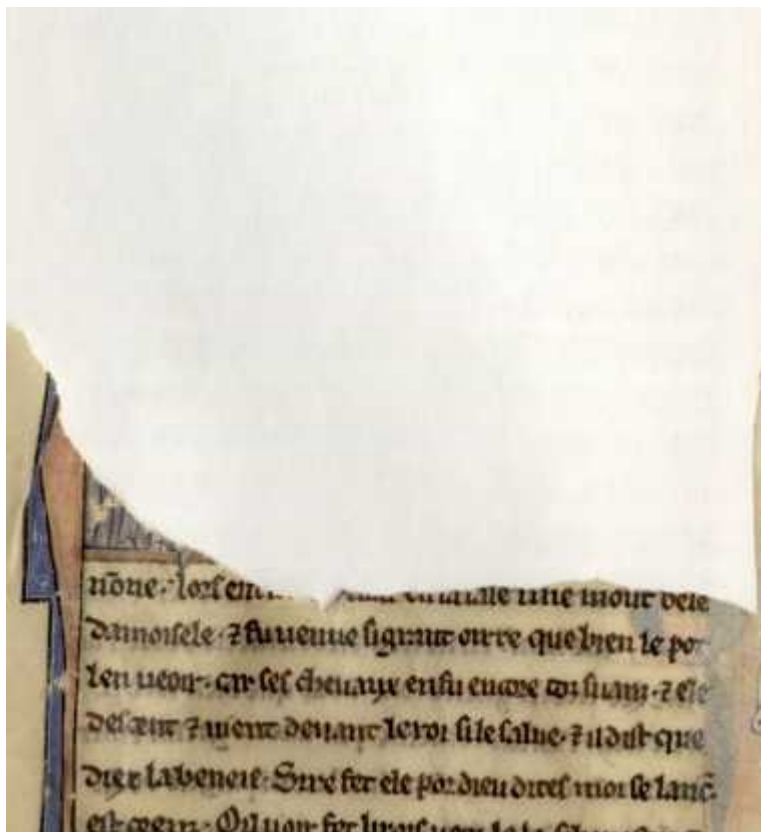 none. lors en une mout bele
damoisele. ⁊ fu uenue si grant oirre que bien le pot
len ueoir. car ses cheuaux en fu encore toz suanz. ⁊ ele
descent ⁊ uient deuant le roi si le salue. ⁊ il dist que
diex la beneie. Sire fet ele por dieu dites moi se lanc̃.
est